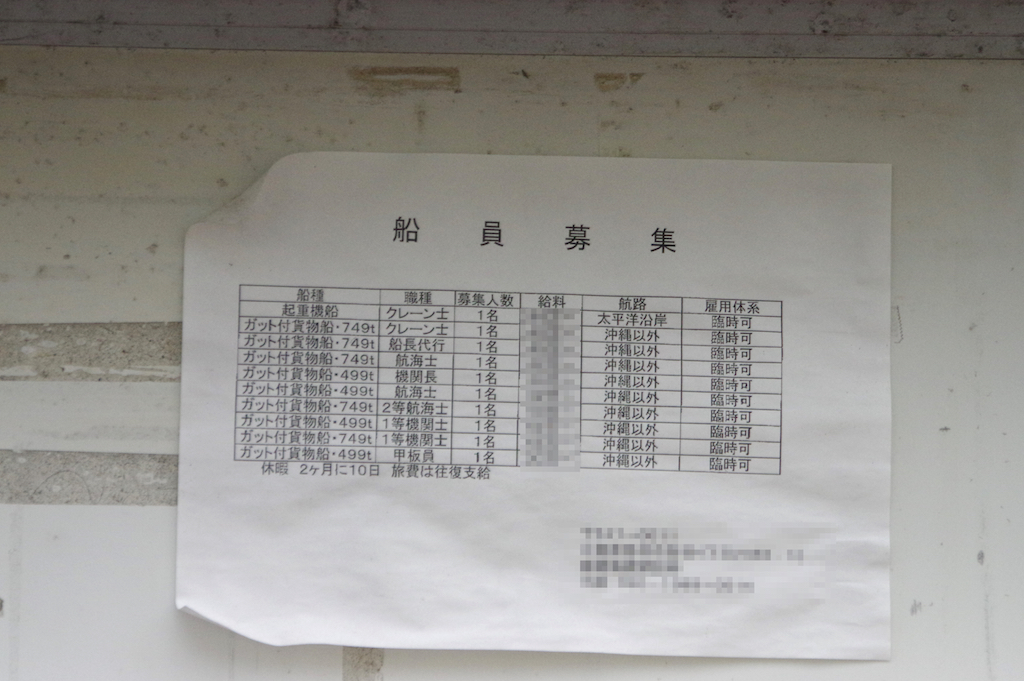 船員募集
船種 職種 募集人数 給料 航路 雇用体系
起重機船 クレーン士 1名 太平洋沿岸 臨時可
ガット付貨物船・749t クレーン士 1名 沖縄以外 臨時可
ガット付貨物船・749t 船長代行 1名 沖縄以外 臨時可
ガット付貨物船・749t 航海士 1名 沖縄以外 臨時可
ガット付貨物船・499t 機関長 1名 沖縄以外 臨時可
ガット付貨物船・499t 航海士 1名 沖縄以外 臨時可
ガット付貨物船・749t 2等航海士 1名 沖縄以外 臨時可
ガット付貨物船・499t 1等機関士 1名 沖縄以外 臨時可
ガット付貨物船・749t 1等機関士 1名 沖縄以外 臨時可
ガット付貨物船・499t 甲板員 1名 沖縄以外 臨時可
休暇 2ヶ月に10日 旅費は往復支給